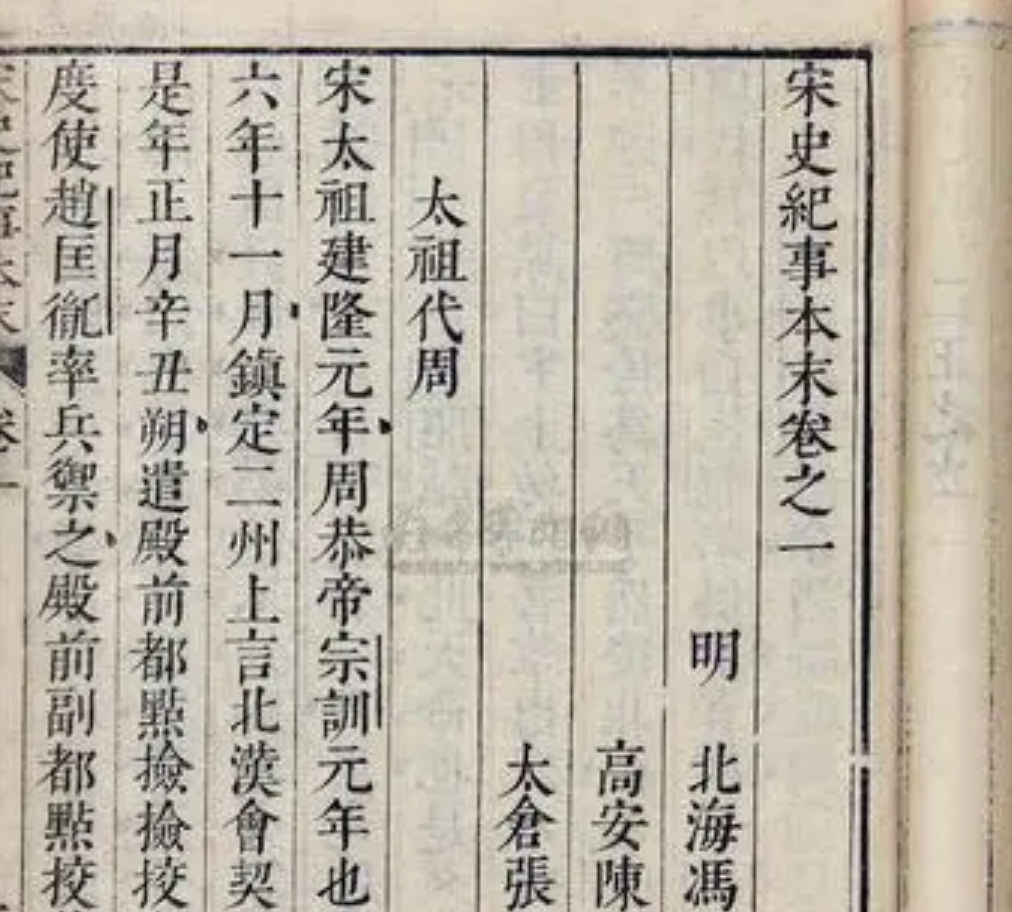 宋史紀事本末卷之一
明 北海馮
高安陳
太倉張
太祖代周
宋太祖建隆元年周恭帝宗訓元年也
六年十一月鎮定二州上言北漢會契
是年正月辛丑朔遣殿前都點撿撿挍
度使趙匡胤率兵禦之殿前副都點挍
宋史紀事本末 卷一